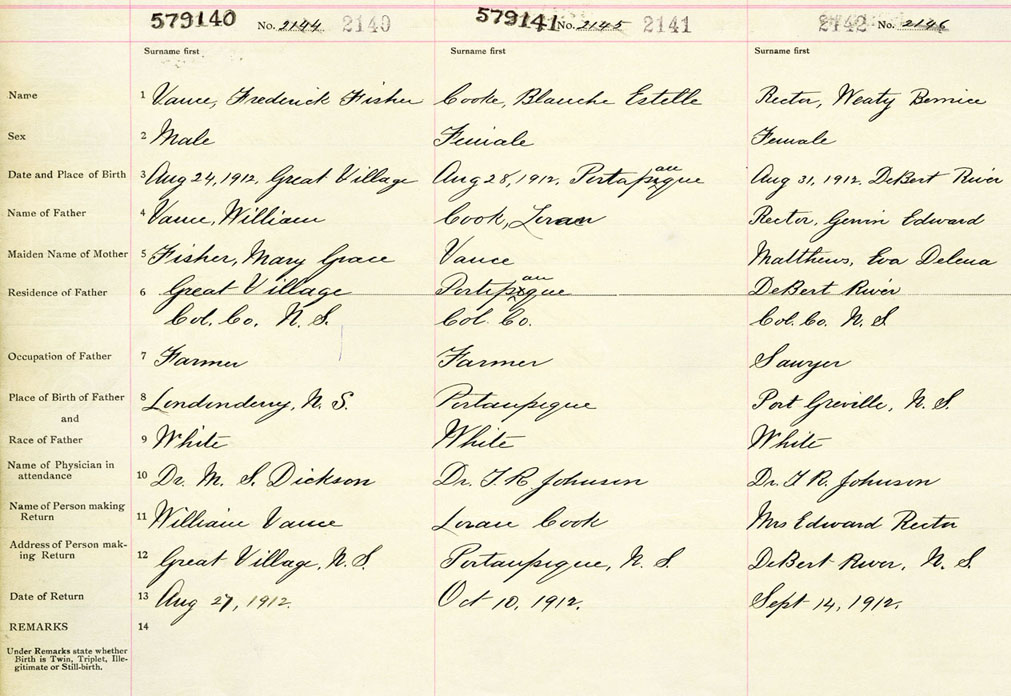 579140 No. 2144 2140 579141 No. 2145 2141 2142 No. 2146
Surname first Surname first Surname first
Name 1 Vance, Frederick Fisher Cooke, Blanche Estelle Rector, Weaty Bernice
Sex 2 Male Female Female
Date and Place of Birth 3 Aug 24, 1912. Great Village Aug 28, 1912. Portapique Aug 31, 1912. DeBert River
Name of Father 4 Vance, William Cook, Loran Rector, Edward
Maiden Name of Mother 5 Fisher, Mary Grace Vance Matthews, Eva Delena
Residence of Father 6 Great Village DeBert River
Col. Co. N. S. Col. Co. Col. Co. N. S
Occupation of Father 7 Farmer Farmer Sawyer
Place of Birth of Father 8 Londonderry, N. S. Portaupique Port Greville, N. S.
and
Race of Father 9 White White White
Name of Physician in
attendance 10 Dr. M. S. Dickson Dr. T R Johnson Dr. T R. Johnson
Name of Person making
Return 11 William Vance Loran Cook Mrs Edward Rector
Address of Person mak-
ing Return 12 Great Village, N. S. Portaupique, N. S. DeBert River, N. S.
Date of Return 13 Aug 27, 1912. Oct 10, 1912. Sept 14, 1912.
REMARKS 14
Under Remarks state whether
Birth is Twin, Triplet, Ille-
gitimate or Still-birth.